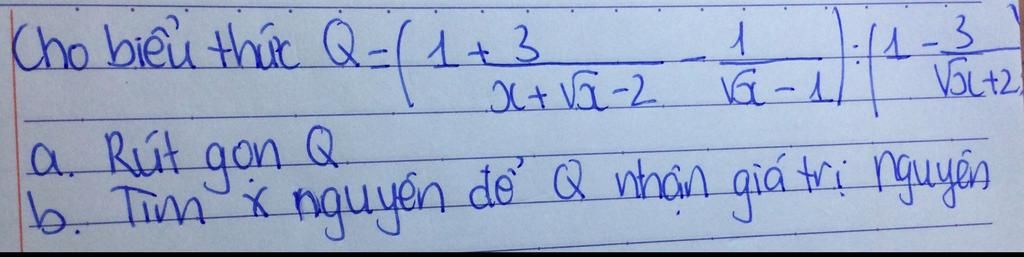 Cho biểu thức Q = ( 1 + 3/(x+√x-2) - 1/(√x-1) ) : ( 1 - 3/(√x+2) )
a. Rút gọn Q
b. Tìm x nguyên để Q nhận giá trị nguyên